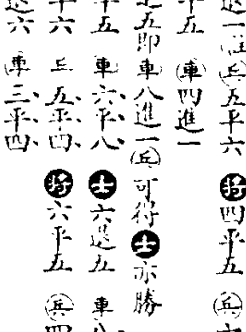 退一註兵五平六 將四平五 兵
平五 車四進一
進五即車八進一兵可得士亦勝
平五 車六平八 士六退五 車八
平六 兵五平四 將六平五 兵四
退六 車三平四